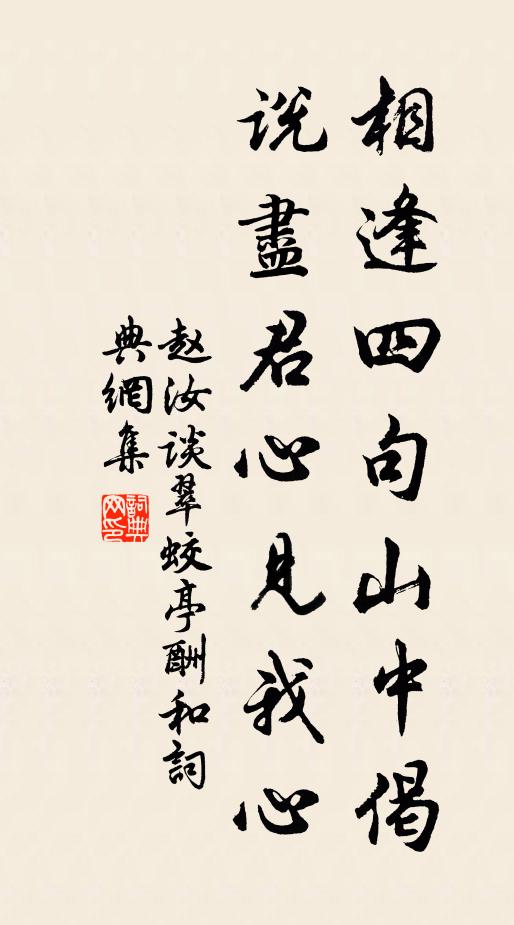 相逢四句山中偈
説盡君心見我心
赵汝谈翠蛟亭酬和詞
典網集
詞典网印